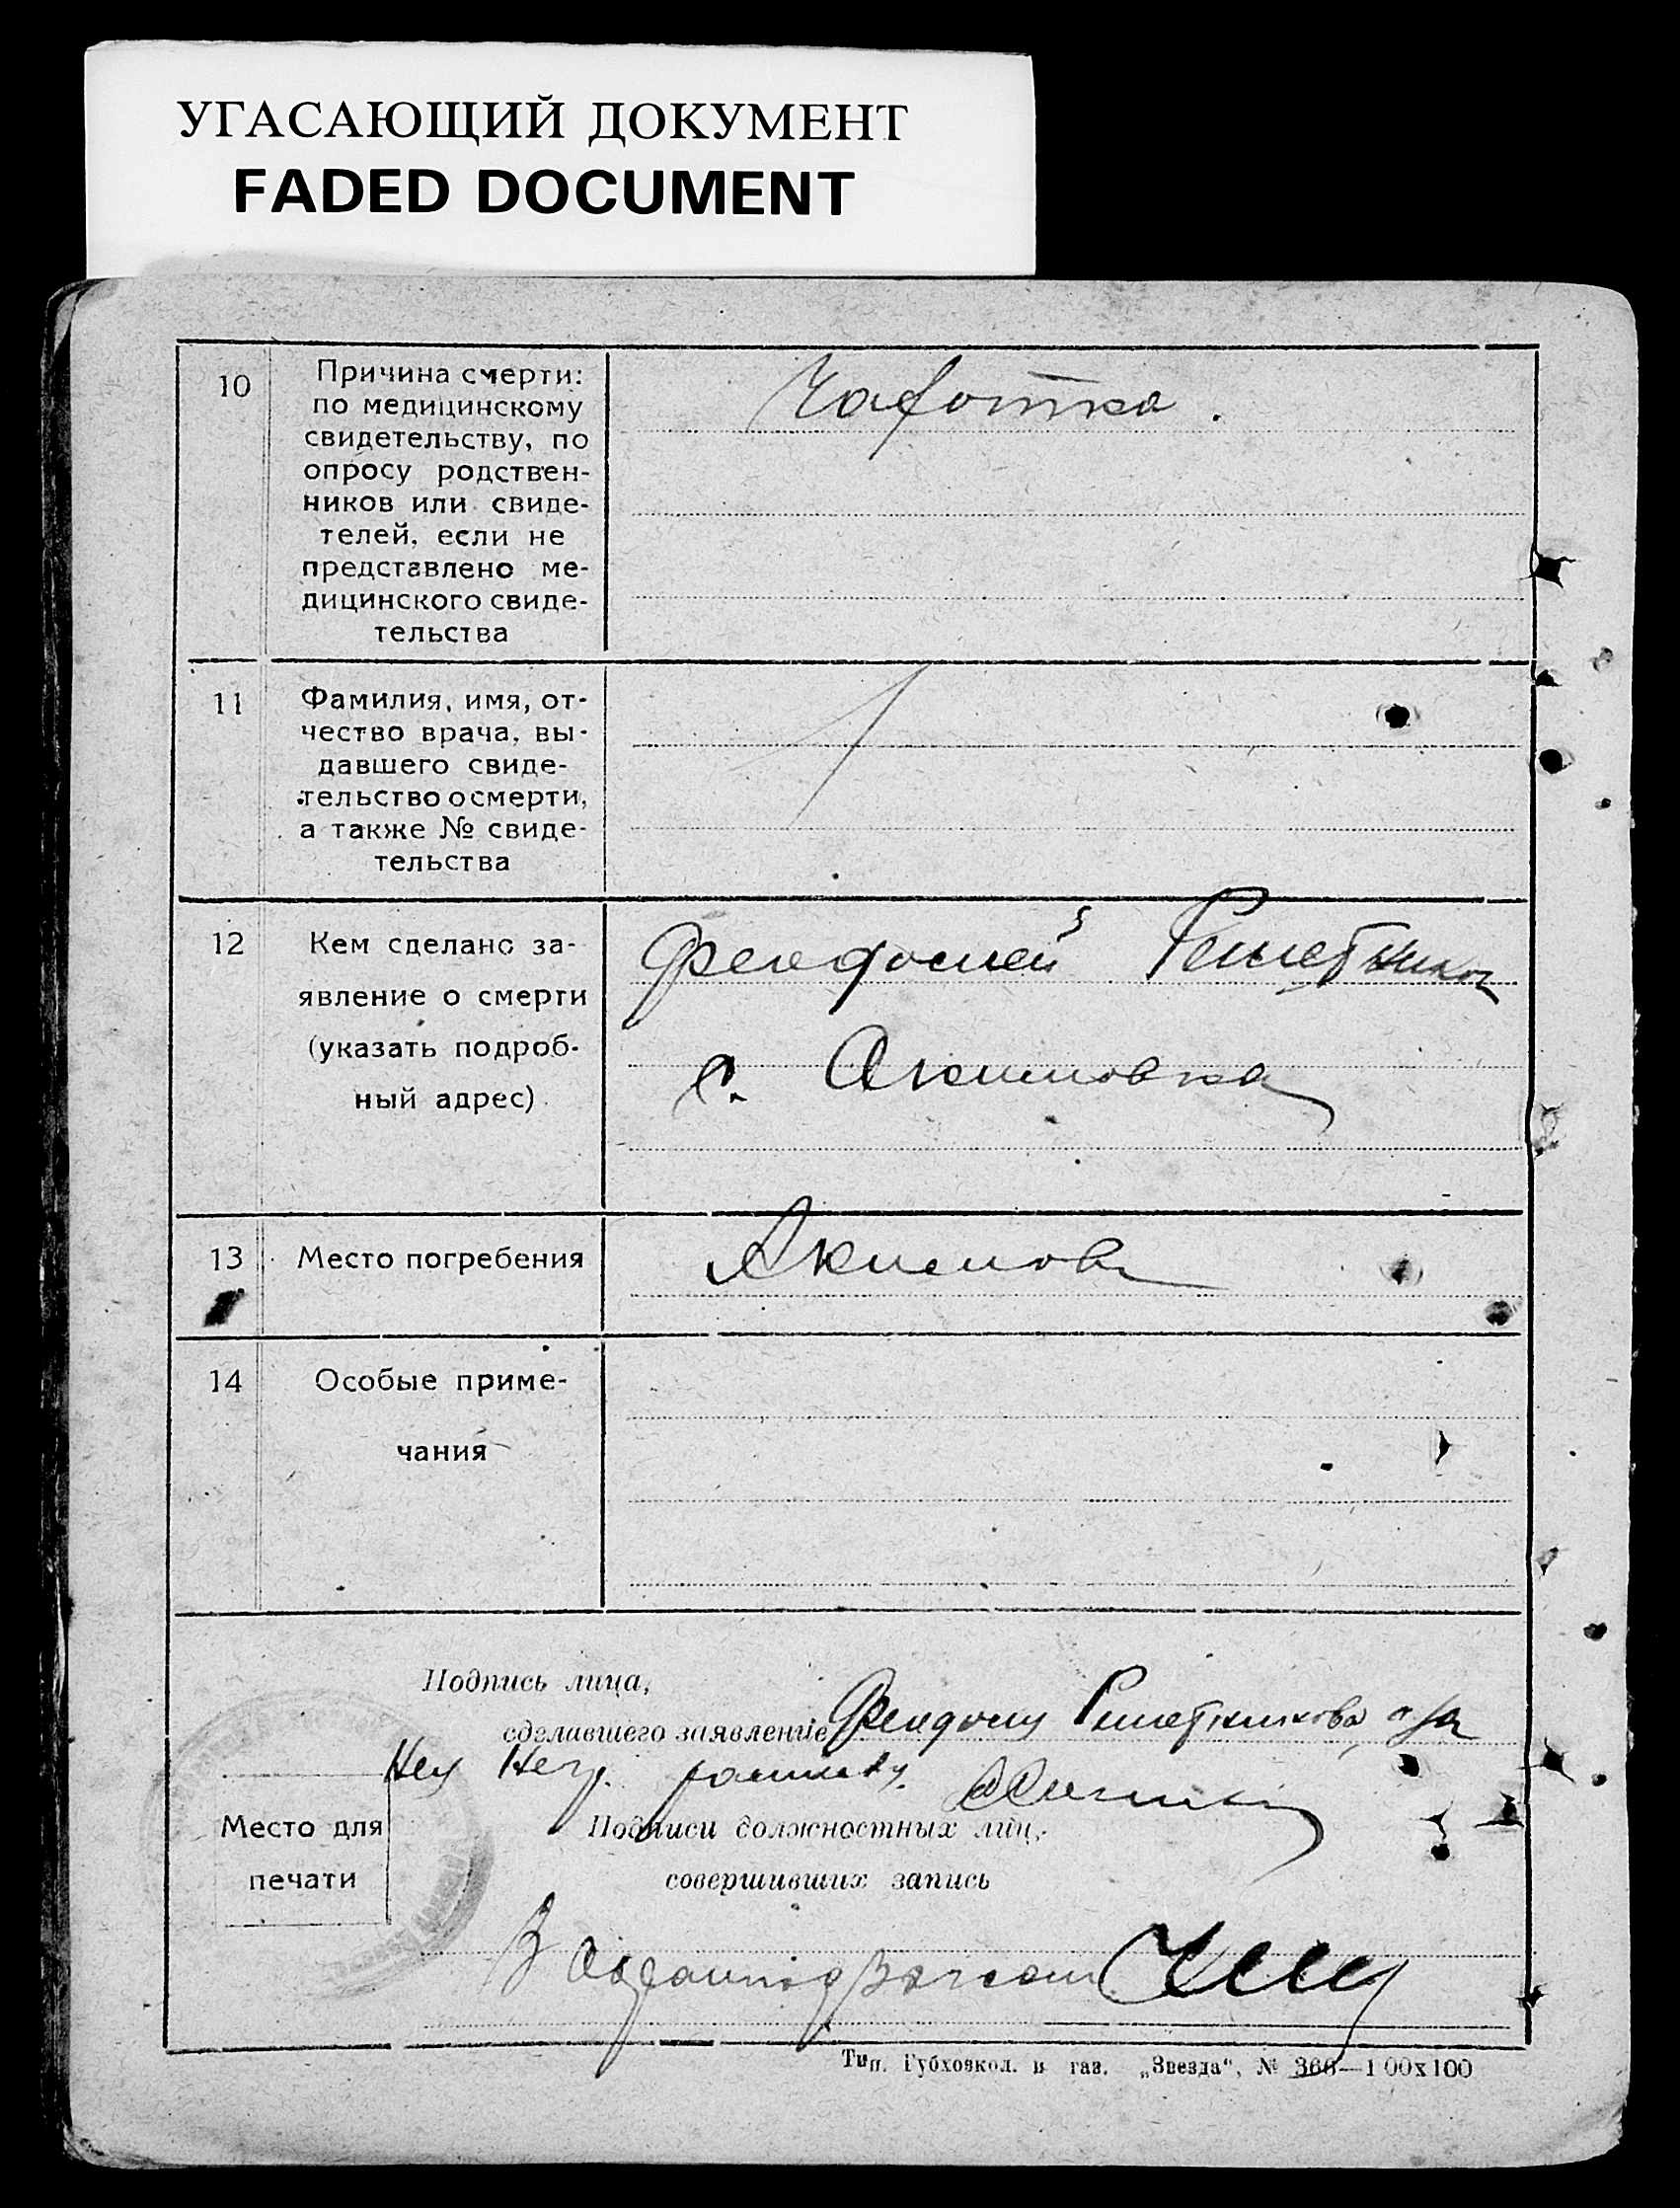 УГАСАЮЩИЙ ДОКУМЕНТ
FADED DOCUMENT
10
Причина смерти:
по медицинскому
свидетельству, по
опросу родствен-
ников или свиде-
телей, если не
представлено ме-
дицинского свиде-
тельства
Чахотка.
11
Фамилия, имя, от-
чество врача, вы-
давшего свиде-
тельство о смерти,
а также № свиде-
тельства
12
Кем сделано за-
явление о смерти
(указать подроб-
ный адрес)
Феодосией Решетников
с. Акимовка
13
Место погребения
Акимовка
14
Особые приме-
чания
Подпись лица,
сделавшего заявление Решетникова, а за
Место для
печати
Подписи должностных лиц,
совершивших запись
Тип. Губхозкол. и газ. „Звезда", № 366—100х100